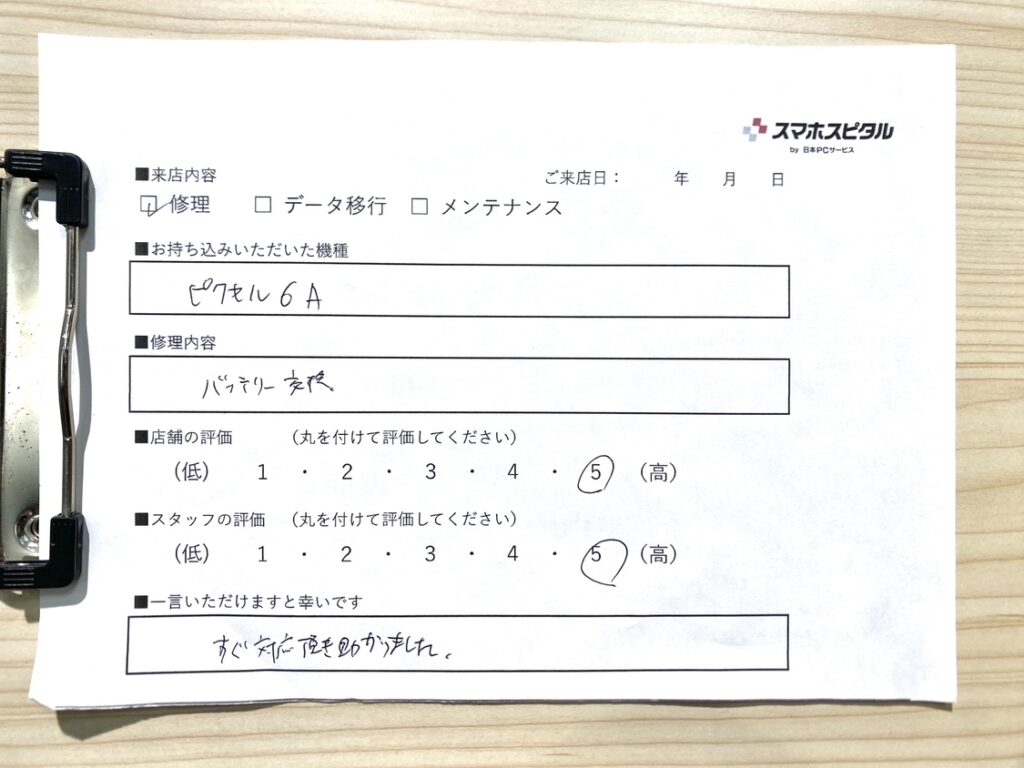 スマホスピタル
by 日本PCサービス
■来店内容 ご来店日： 年 月 日
☑ 修理 □ データ移行 □ メンテナンス
■お持ち込みいただいた機種
ピクセル 6 A
■修理内容
バッテリー交換
■店舗の評価 （丸を付けて評価してください）
（低） 1 ・ 2 ・ 3 ・ 4 ・ 5 （高）
■スタッフの評価 （丸を付けて評価してください）
（低） 1 ・ 2 ・ 3 ・ 4 ・ 5 （高）
■一言いただけますと幸いです
すぐ対応頂き助かりました。